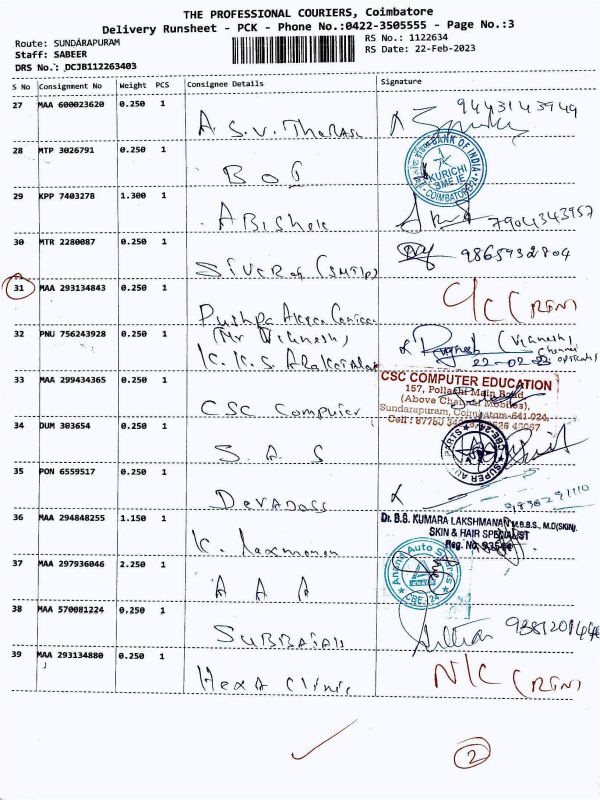 THE PROFESSIONAL COURIERS, Coimbatore
Delivery Runsheet - PCK - Phone No.:0422-3505555 - Page No.:3
Route: SUNDARAPURAM
RS No.: 1122634
Staff: SABEER
RS Date: 22-Feb-2023
DRS No.: DCJB112263403
S No Consignment No Weight PCS Consignee Details Signature
27 MAA 600023620 0.250 1 A.S.V. 9443143949
28 MTP 3026791 0.250 1 BOI
BANK OF INDIA KURICHI SME COIMBATORE
29 KPP 7403278 1.300 1 ABishek 7904343957
30 MTR 2280087 0.250 1 9865932804
31 MAA 293134843 0.250 1 Pushpa C/C (RGN)
32 PNU 756243928 0.250 1 (Mr Vignesh) (Vignesh)
K.K.S 22-02-23 opticals
33 MAA 299434365 0.250 1 CSC Computer
CSC COMPUTER EDUCATION
157, Pollachi Main Road
(Above Chennai Mobiles),
Sundarapuram, Coimbatore-641 024.
Cell :
34 DUM 303654 0.250 1 S. A. S
35 PON 6559517 0.250 1 DevADoss
36 MAA 294848255 1.150 1 K. Laxmanan
Dr. B.S. KUMARA LAKSHMANAN M.B.B.S., M.D(SKIN).
SKIN & HAIR SPECIALIST
Reg. No.
37 MAA 297936046 2.250 1 A A A
Anand Auto Spares CBE-24
38 MAA 570081224 0.250 1 SUBBAIAH
39 MAA 293134880 0.250 1 HexA Clinic N/C (RGN)
2